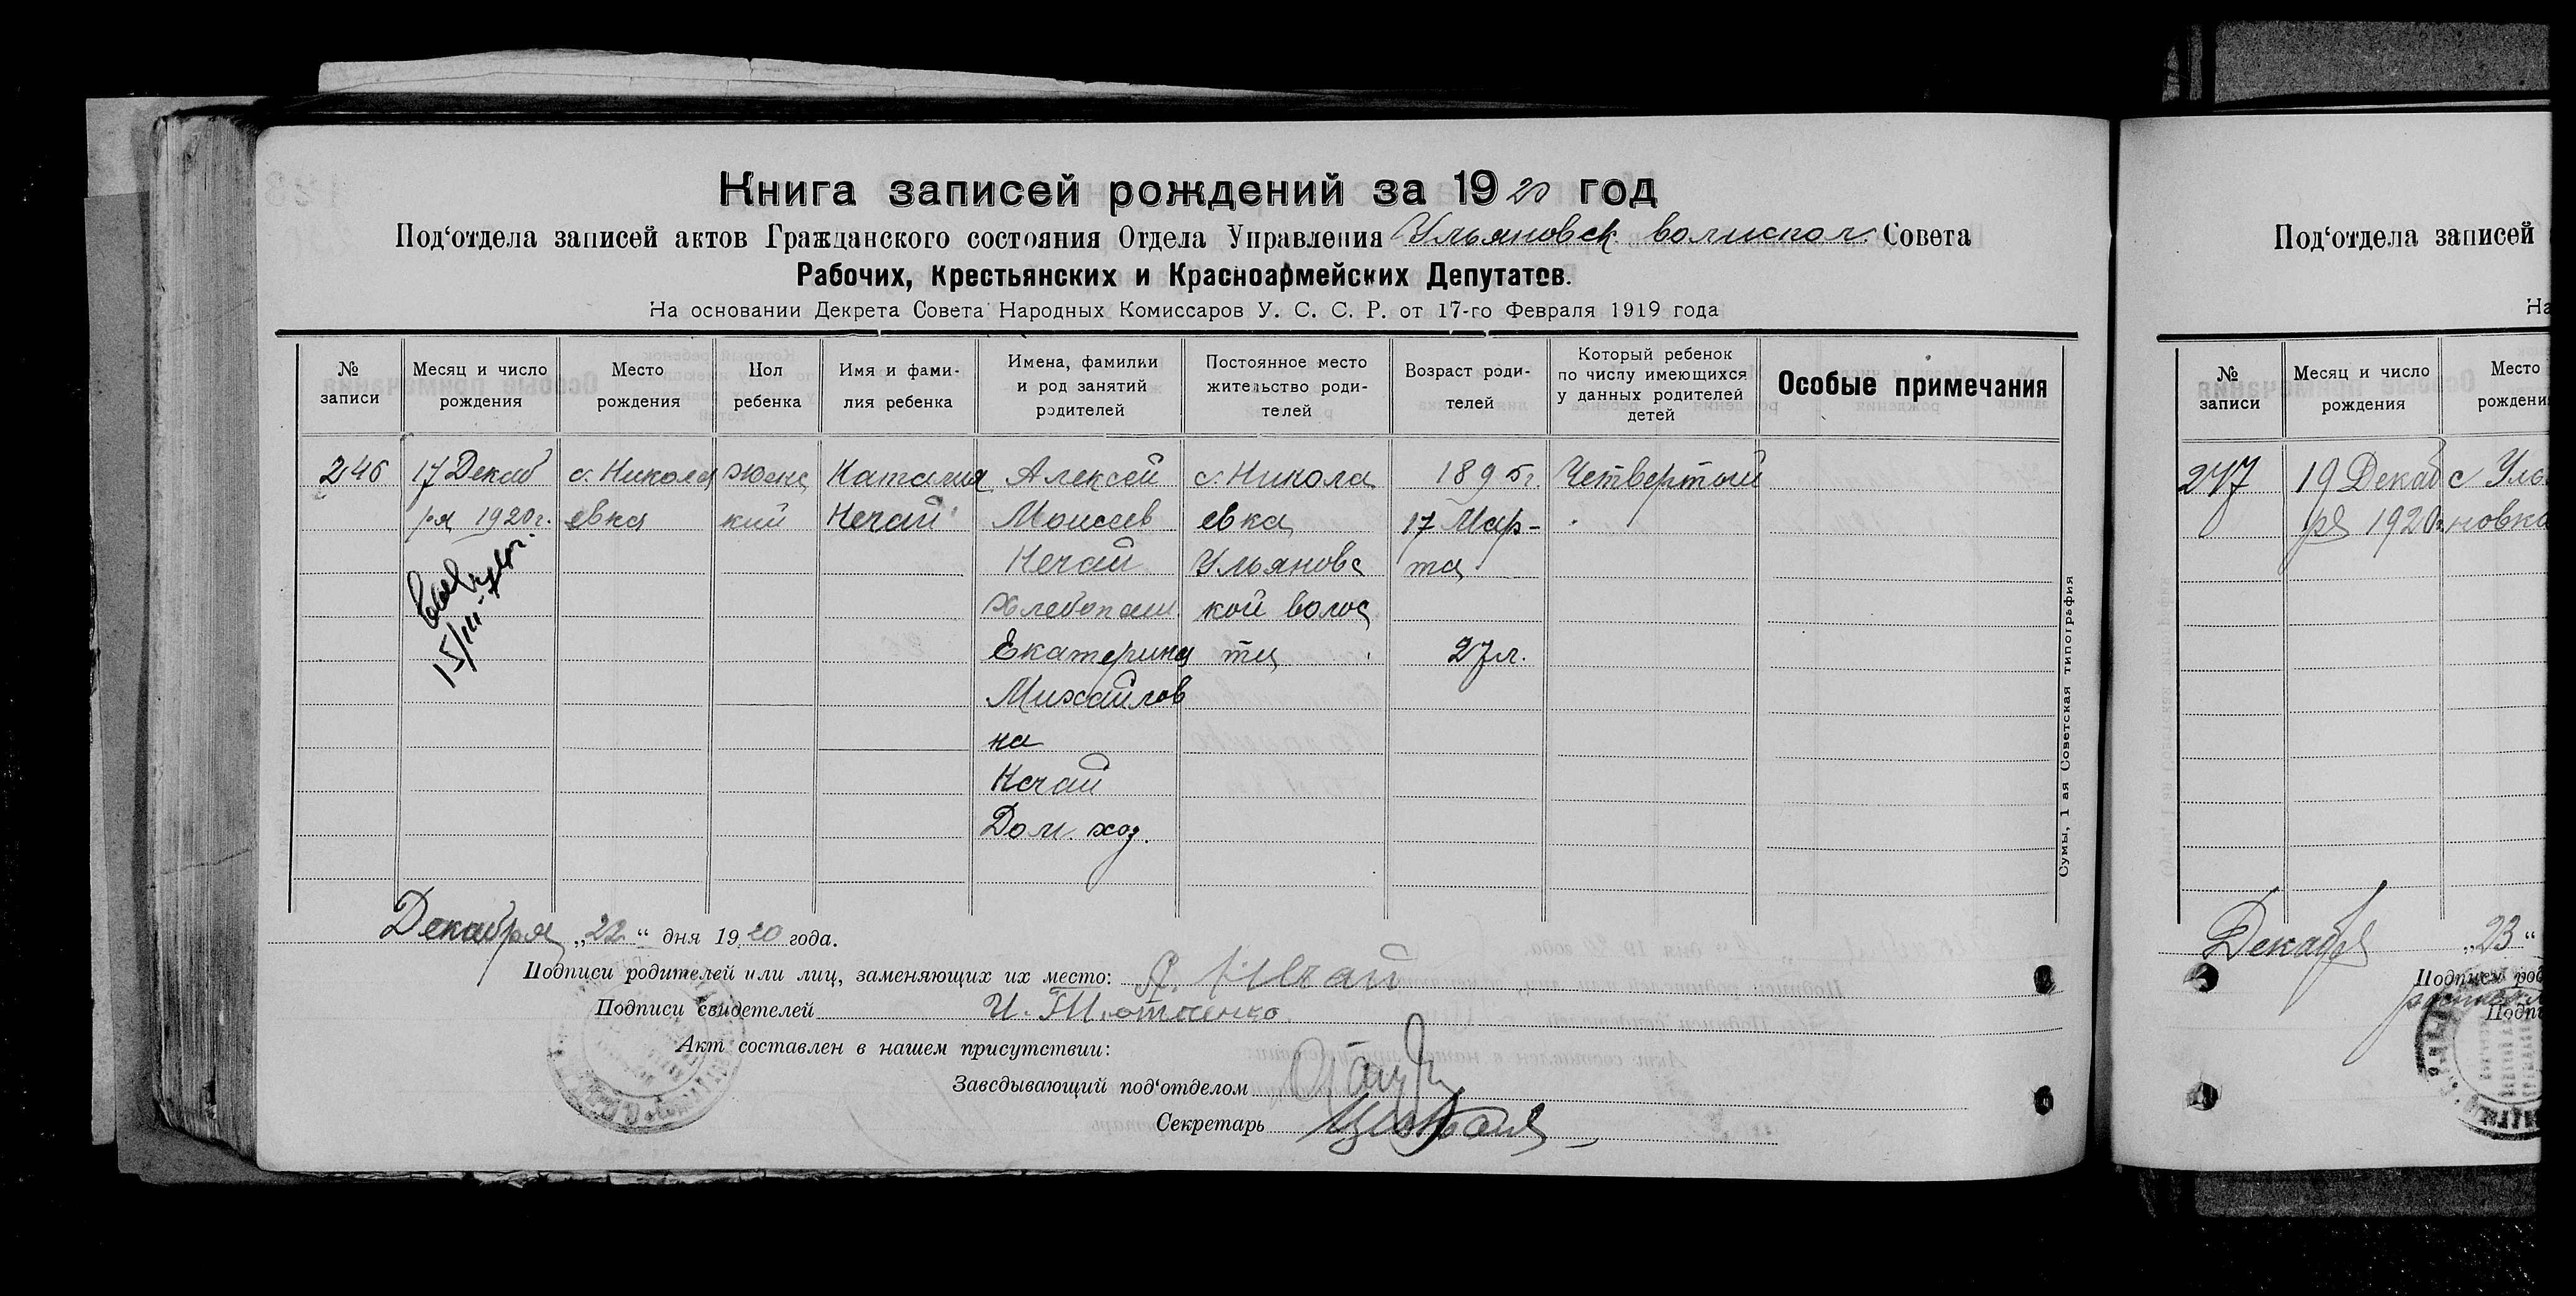 Книга записей рождений за 1920 год
Под‘отдела записей актов Гражданского состояния Отдела Управления Ульяновск волиспол. Совета
Рабочих, Крестьянских и Красноармейских Депутатов.
На основании Декрета Совета Народных Комиссаров У. С. С. Р. от 17-го Февраля 1919 года
№ записи
Месяц и число рождения
Место рождения
Пол ребенка
Имя и фами-
лия ребенка
Имена, фамилии и род занятий родителей
Постоянное место жительство роди-
телей
Возраст роди-
телей
Который ребенок по числу имеющихся у данных родителей детей
Особые примечания
246
17 Декаб
ря 1920 г.
с. Никола
евка
женс
кий
Наталия
Нечай
Алексей
Моисеев
Нечай
Хлебопаш.
Екатерина
Михайлов
на
Нечай
Дом. хоз.
с. Никола
евка
Ульяновс
кой волос
ти
1895 г.
17 Мар-
та
27 л.
Четвертый
15/III
Сумы, 1 ая Советская типография
Декабря „22“ дня 1920 года.
Подписи родителей или лиц, заменяющих их место: А. Нечай
Подписи свидетелей
Акт составлен в нашем присутствии:
Заведывающий под‘отделом
Секретарь
Под‘отдела записей
На
№ записи
Месяц и число рождения
Место
рождени
247
19 Декаб
ря 1920 г.
с Уль
новка
Декабря „23“
Подписи род
Подпи